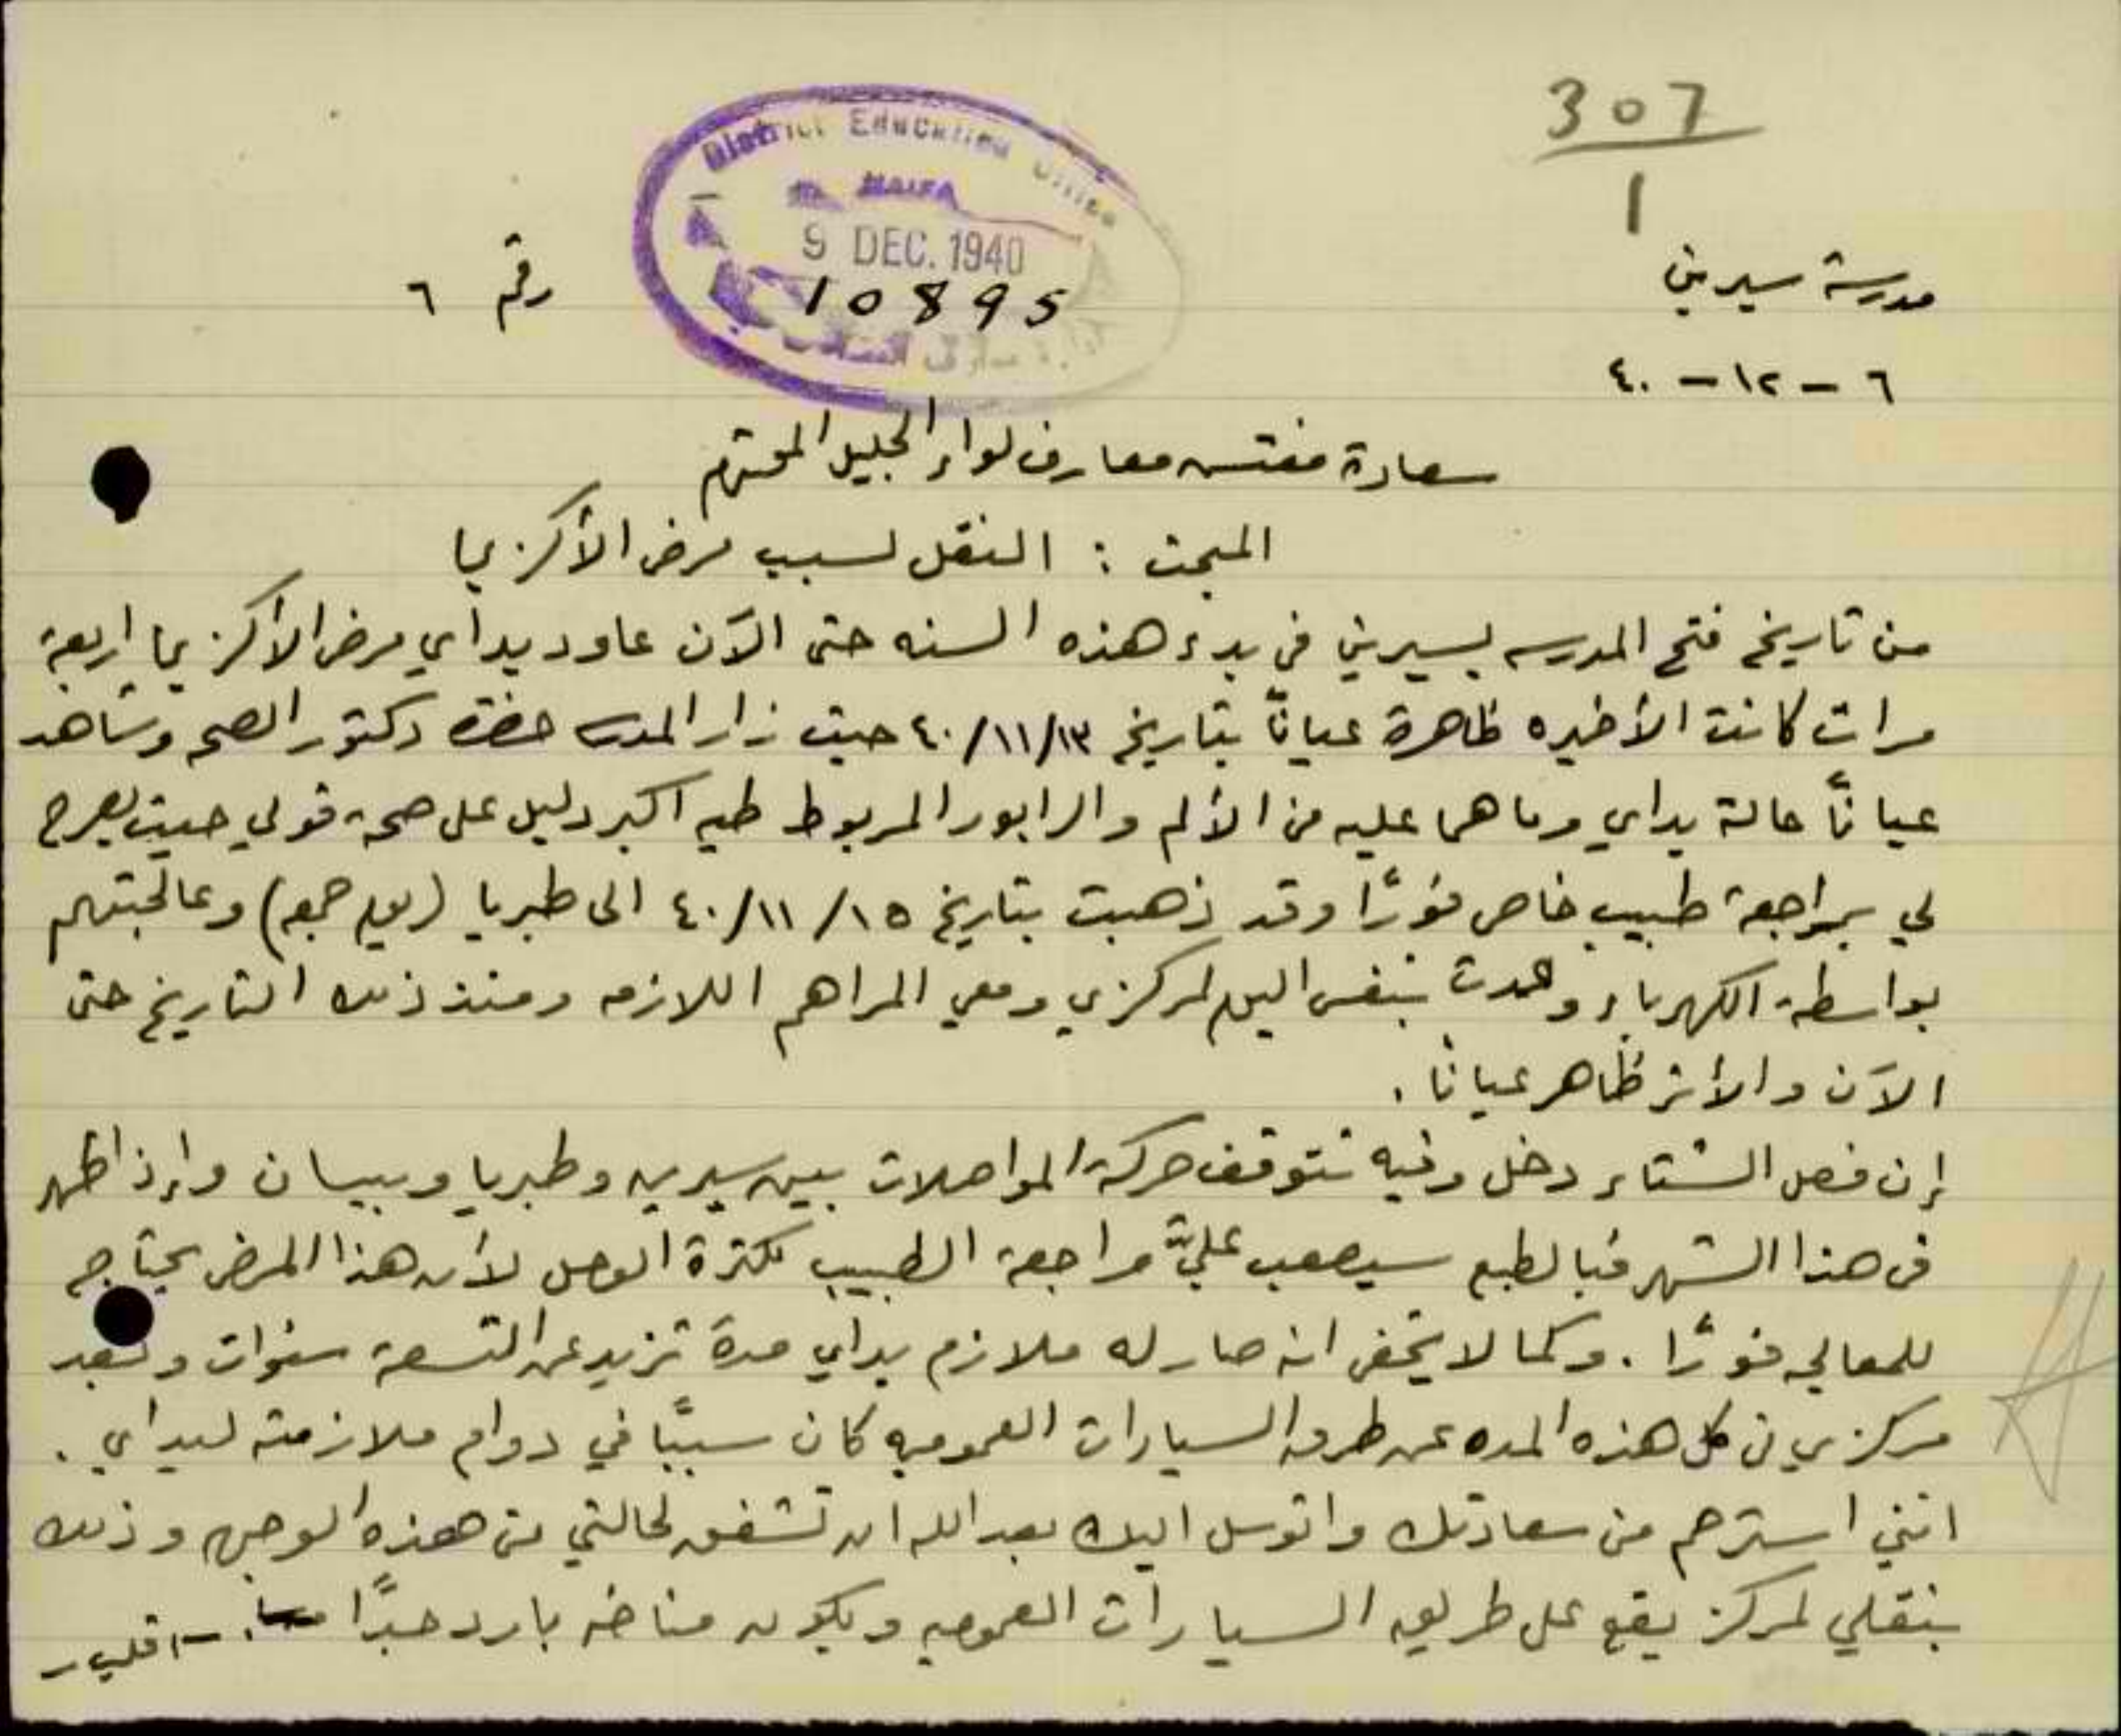 307
1
District Education Office
HAIFA
9 DEC. 1940
10895
مدرسة سيرين
رقم ٦
٦ - ١٢ - ٤٠
سعادة مفتش معارف لواء الجليل المحترم
المبحث : النقل لسبب مرض الأكزيما
من تاريخ فتح المدرسه بسيرين في بدء هذه السنه حتى الآن عاود يداي مرض الأكزيما اربعة
مرات كانت الأخيره ظاهرة عيانًا بتاريخ ٤٠/١١/١٣ حيث زار المدرسه حضرة دكتور الصحه وشاهد
عيانًا حالة يداي وما هما عليه من الألم والرابور المربوط طيه اكبر دليل على صحة قولي حيث يصرح
لي بمراجعة طبيب خاص فورًا وقد ذهبت بتاريخ ٤٠/١١/١٥ الى طبريا (يوم جمعه) وعالجتهم
بواسطة الكهرباء وعدت بنفس اليوم لمركزي ومعي المراهم اللازمه ومنذ ذلك التاريخ حتى
الآن والأثر ظاهر عيانًا .
إن فصل الشتاء دخل وفيه تتوقف حركة المواصلات بين سيرين وطبريا وبيسان وإذا ظهر
في هذا الشهر فبالطبع سيصعب عليَّ مراجعة الطبيب لكثرة الوحل لأن هذا المرض يحتاج
للمعالجه فورًا . وكما لا يخفى انه صار له ملازم يداي مدة تزيد عن التسعة سنوات وبعد
مركزي في كل هذه المده عن طرق السيارات العموميه كان سببًا في دوام ملازمته ليداي .
انني استرحم من سعادتك واتوسل اليك بعد الله ان تشفق لحالتي من هذه الوجهه وذلك
بنقلي لمركز يقع على طريق السيارات العموميه ويكون مناخه بارد جدًا